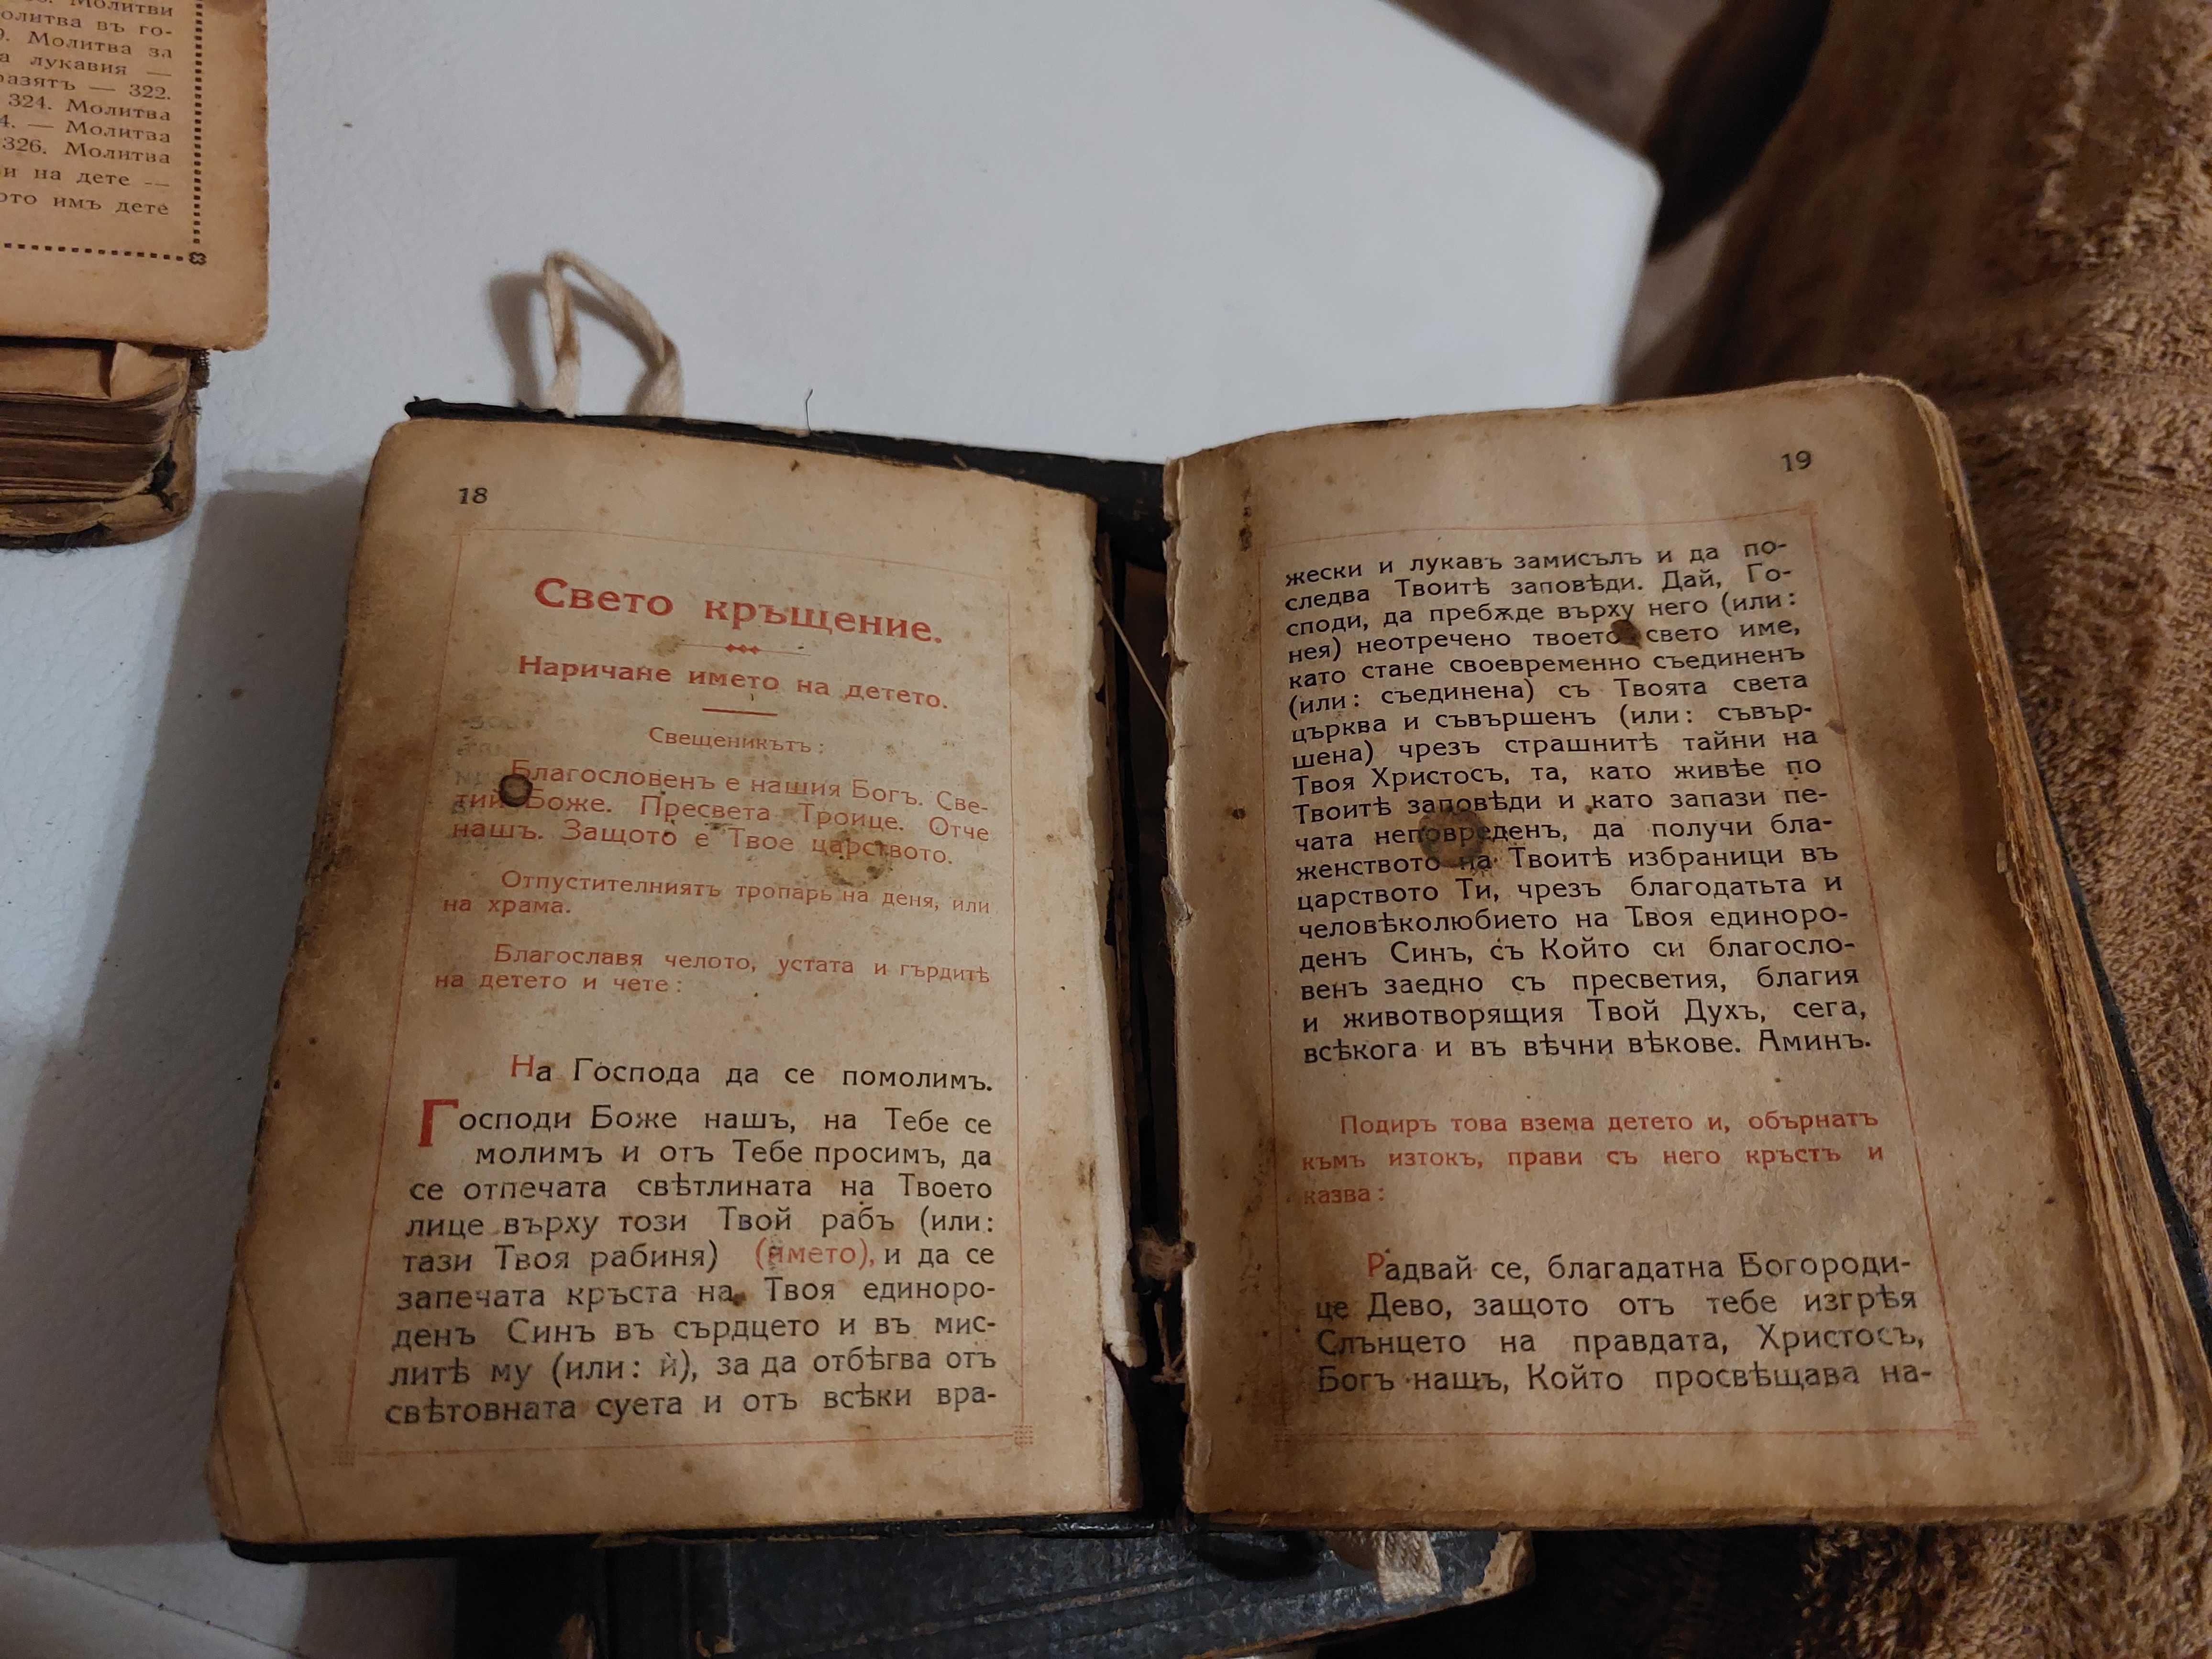 Молитви
молитва въ го-
Молитва за
лукавия —
— 322.
324. Молитва
— Молитва
326. Молитва
и на дете —
имъ дете
18
Свето кръщение.
Наричане името на детето.
Свещеникътъ:
Благословенъ е нашия Богъ. Све-
тий Боже. Пресвета Троице. Отче
нашъ. Защото е Твое царството.
Отпустителниятъ тропарь на деня, или
на храма.
Благославя челото, устата и гърдитѣ
на детето и чете:
На Господа да се помолимъ.
Господи Боже нашъ, на Тебе се
молимъ и отъ Тебе просимъ, да
се отпечата свѣтлината на Твоето
лице върху този Твой рабъ (или:
тази Твоя рабиня) (името), и да се
запечата кръста на Твоя единоро-
денъ Синъ въ сърдцето и въ мис-
литѣ му (или: ѝ), за да отбѣгва отъ
свѣтовната суета и отъ всѣки вра-
19
жески и лукавъ замисълъ и да по-
следва Твоитѣ заповѣди. Дай, Го-
споди, да пребѫде върху него (или:
нея) неотречено твоето свето име,
като стане своевременно съединенъ
(или: съединена) съ Твоята света
църква и съвършенъ (или: съвър-
шена) чрезъ страшнитѣ тайни на
Твоя Христосъ, та, като живѣе по
Твоитѣ заповѣди и като запази пе-
чата неповреденъ, да получи бла-
женството на Твоитѣ избраници въ
царството Ти, чрезъ благодатьта и
человѣколюбието на Твоя единоро-
денъ Синъ, съ Който си благосло-
венъ заедно съ пресветия, благия
и животворящия Твой Духъ, сега,
всѣкога и въ вѣчни вѣкове. Аминъ.
Подиръ това взема детето и, обърнатъ
къмъ изтокъ, прави съ него кръстъ и
казва:
Радвай се, благадатна Богороди-
це Дево, защото отъ тебе изгрѣя
Слънцето на правдата, Христосъ,
Богъ нашъ, Който просвѣщава на-